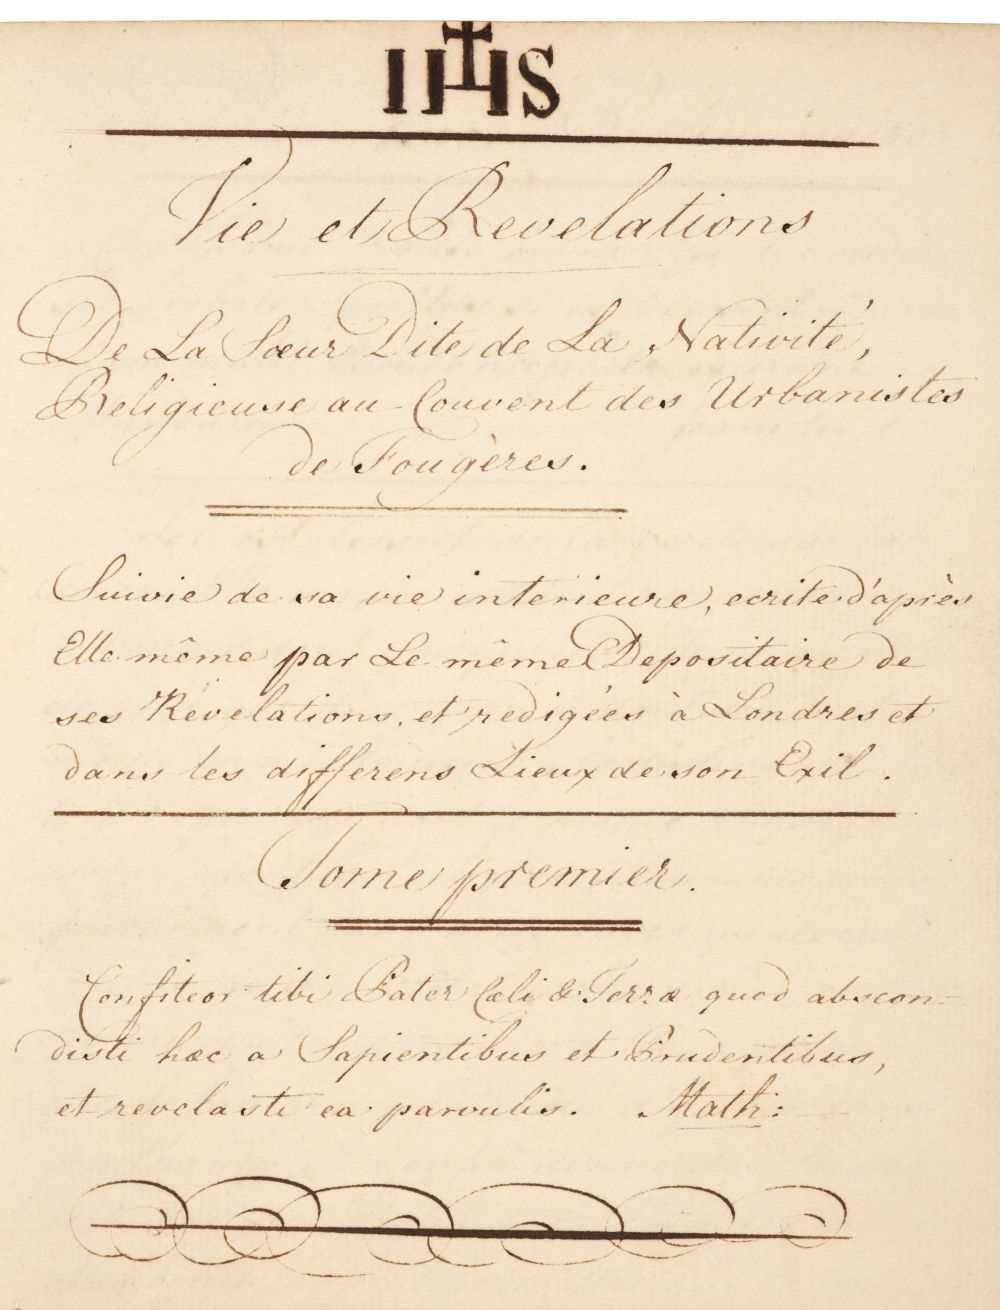 IHS
Vie et Revelations
De La Sœur Dite de La Nativité,
Religieuse au Couvent des Urbanistes
de Fougères.
Suivie de sa vie interieure, ecrite d'après
Elle même par Le même Depositaire de
ses Révelations, et redigées à Londres et
dans les differens Lieux de son Exil.
Tome premier.
Confiteor tibi Pater Cœli & Terræ quod abscon-
disti hæc a Sapientibus et Prudentibus,
et revelasti ea parvulis. Math: